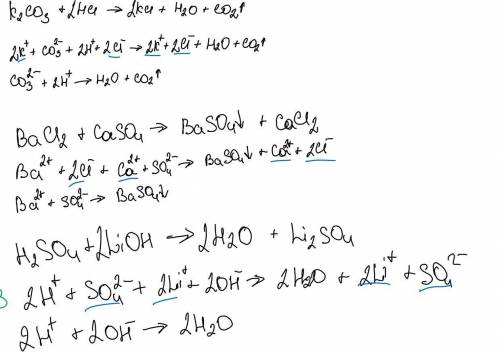 K₂CO₃ + 2HCl → 2KCl + H₂O + CO₂↑
2K⁺ + CO₃²⁻ + 2H⁺ + 2Cl⁻ → 2K⁺ + 2Cl⁻ + H₂O + CO₂↑
CO₃²⁻ + 2H⁺ → H₂O + CO₂↑
BaCl₂ + CaSO₄ → BaSO₄↓ + CaCl₂
Ba²⁺ + 2Cl⁻ + Ca²⁺ + SO₄²⁻ → BaSO₄↓ + Ca²⁺ + 2Cl⁻
Ba²⁺ + SO₄²⁻ → BaSO₄↓
H₂SO₄ + 2LiOH → 2H₂O + Li₂SO₄
2H⁺ + SO₄²⁻ + 2Li⁺ + 2OH⁻ → 2H₂O + 2Li⁺ + SO₄²⁻
2H⁺ + 2OH⁻ → 2H₂O